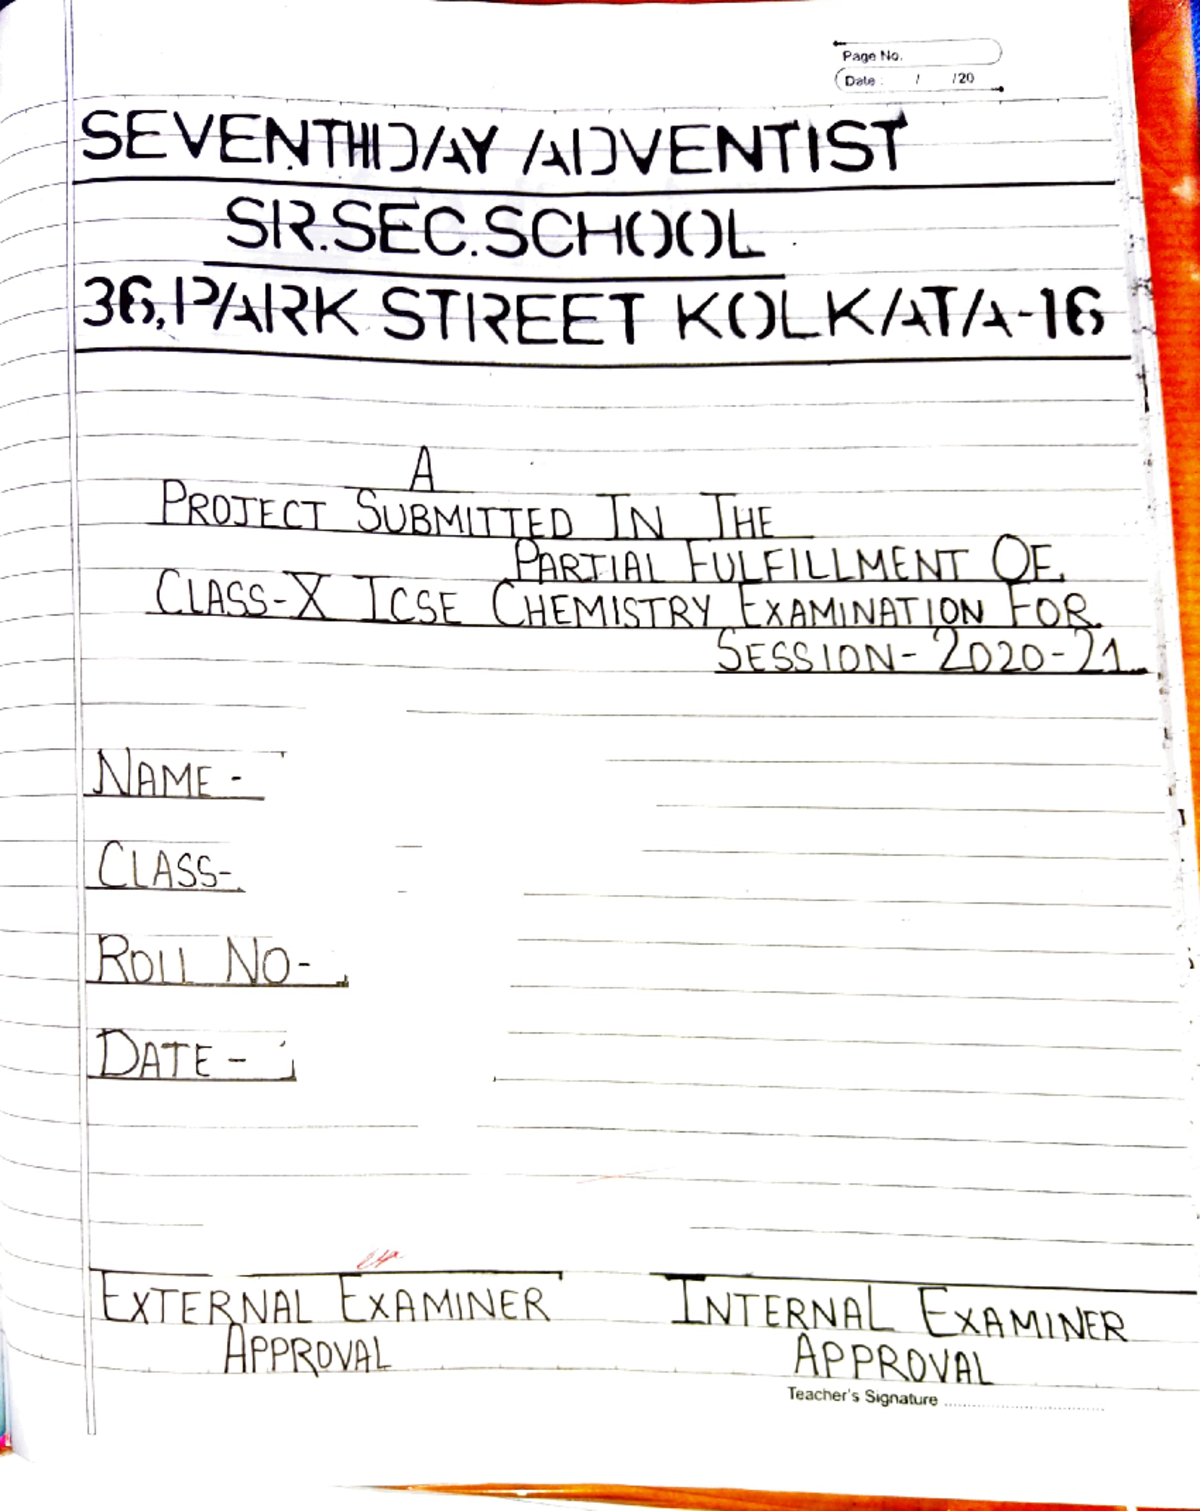 Page No.
Date : / /20
SEVENTH DAY ADVENTIST
SR.SEC.SCHOOL
36, PARK STREET KOLKATA-16
A
PROJECT SUBMITTED IN THE
PARTIAL FULFILLMENT OF
CLASS-X ICSE CHEMISTRY EXAMINATION FOR
SESSION-2020-21
NAME -
CLASS-
ROLL NO-
DATE -
EXTERNAL EXAMINER INTERNAL EXAMINER
APPROVAL APPROVAL
Teacher's Signature